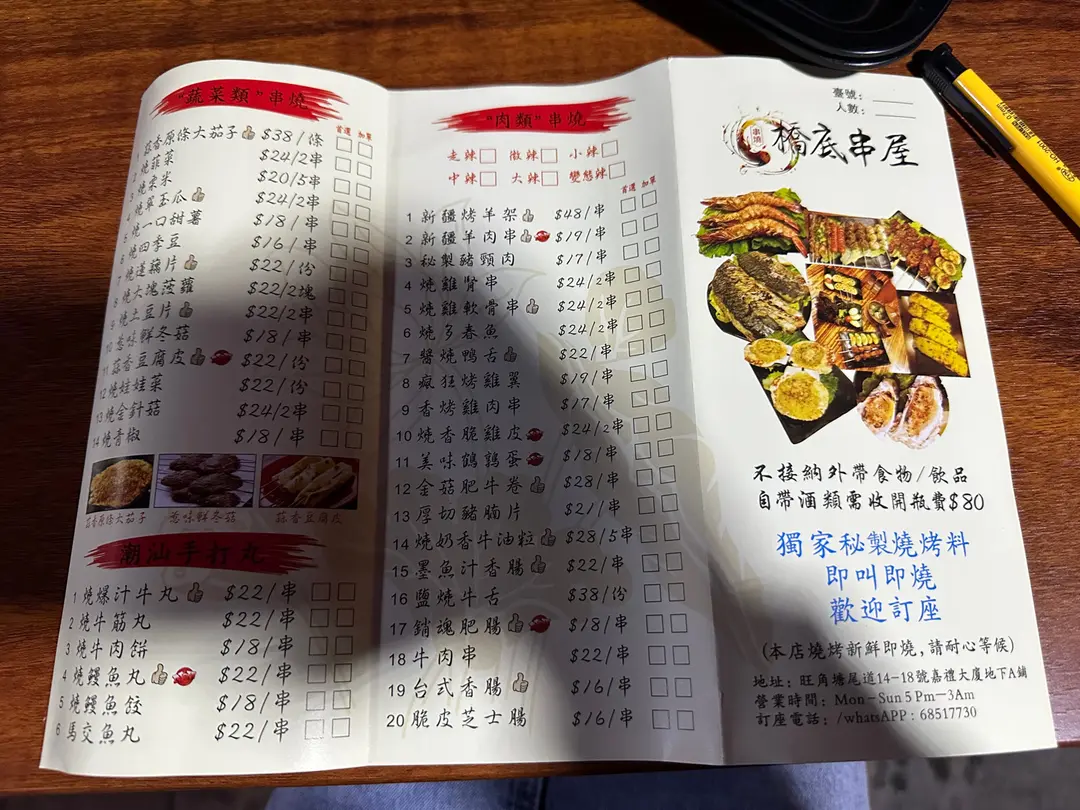 "蔬菜類"串燒
首選 加單
1 蒜香原條大茄子 $38/條
2 燒韮菜 $24/2串
3 燒粟米 $20/5串
4 燒翠玉瓜 $24/2串
5 燒一口甜薯 $18/串
6 燒四季豆 $16/串
7 燒蓮藕片 $22/份
8 燒大塊菠蘿 $22/2塊
9 燒土豆片 $22/2串
10 惹味鮮冬菇 $18/串
11 蒜香豆腐皮 $22/份
12 燒娃娃菜 $22/份
13 燒金針菇 $24/2串
14 燒青椒 $18/串
蒜香原條大茄子 惹味鮮冬菇 蒜香豆腐皮
潮汕手打丸
1 燒爆汁牛丸 $22/串
2 燒牛筋丸 $22/串
3 燒牛肉餅 $18/串
4 燒鰻魚丸 $22/串
5 燒鰻魚餃 $18/串
6 馬交魚丸 $22/串
"肉類"串燒
走辣 微辣 小辣
中辣 大辣 變態辣
首選 加單
1 新疆烤羊架 $48/串
2 新疆羊肉串 $19/串
3 秘製豬頸肉 $17/串
4 燒雞腎串 $24/2串
5 燒雞軟骨串 $24/2串
6 燒多春魚 $24/2串
7 醬燒鴨舌 $22/串
8 瘋狂烤雞翼 $19/串
9 香烤雞肉串 $17/串
10 燒香脆雞皮 $24/2串
11 美味鵪鶉蛋 $18/串
12 金菇肥牛卷 $28/串
13 厚切豬腩片 $21/串
14 燒奶香牛油粒 $28/5串
15 墨魚汁香腸 $22/串
16 鹽燒牛舌 $38/份
17 銷魂肥腸 $18/串
18 牛肉串 $22/串
19 台式香腸 $16/串
20 脆皮芝士腸 $16/串
臺號：
人數：
串燒
橋底串屋
不接納外帶食物/飲品
自帶酒類需收開瓶費$80
獨家秘製燒烤料
即叫即燒
歡迎訂座
(本店燒烤新鮮即燒,請耐心等候)
地址：旺角塘尾道14-18號嘉禮大廈地下A鋪
營業時間：Mon-Sun 5 Pm-3Am
訂座電話：/whatsAPP：68517730